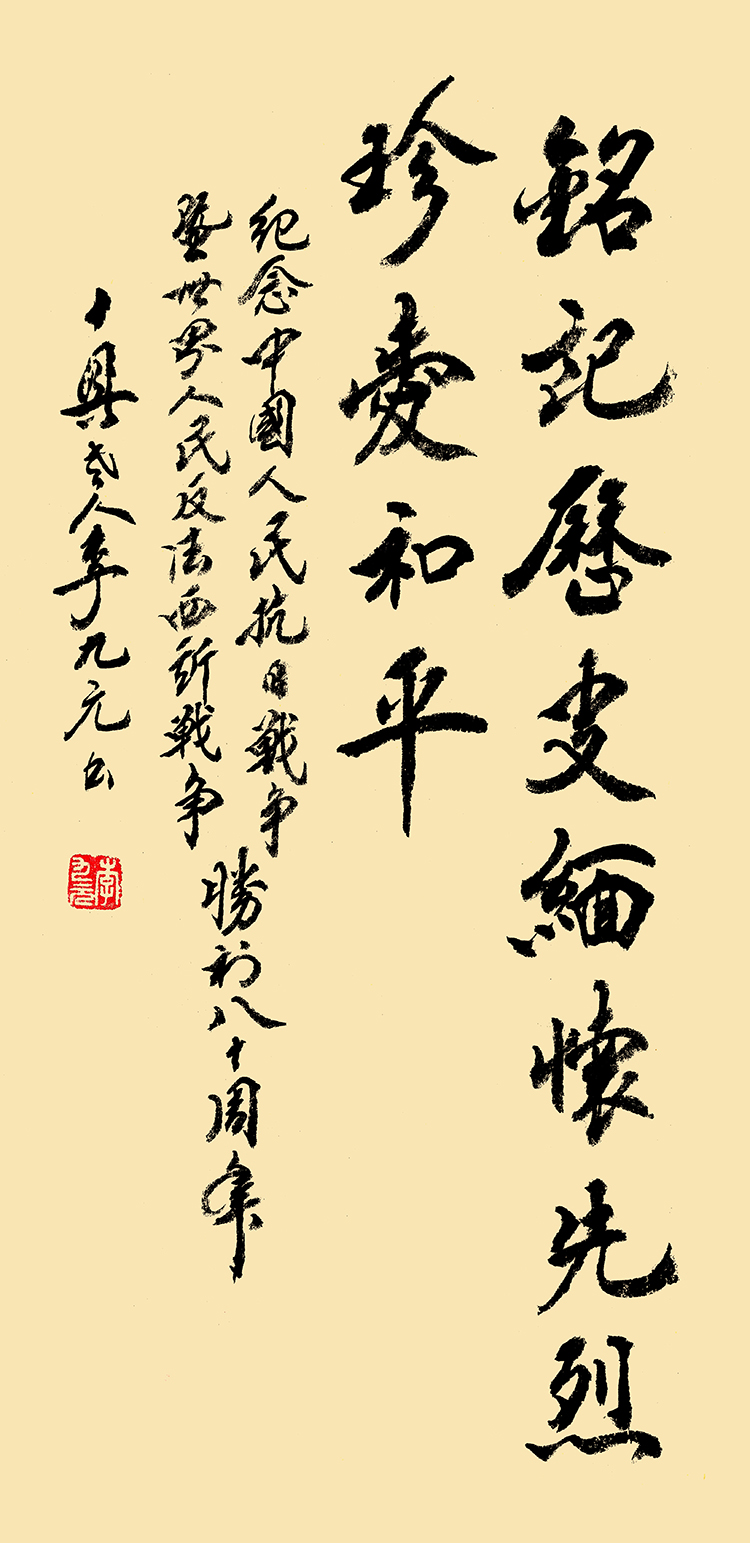 銘記歷史緬懷先烈
珍愛和平
紀念中國人民抗日戰争
暨世界人民反法西斯戰争
勝利八十周年
老人李九元书
李九元